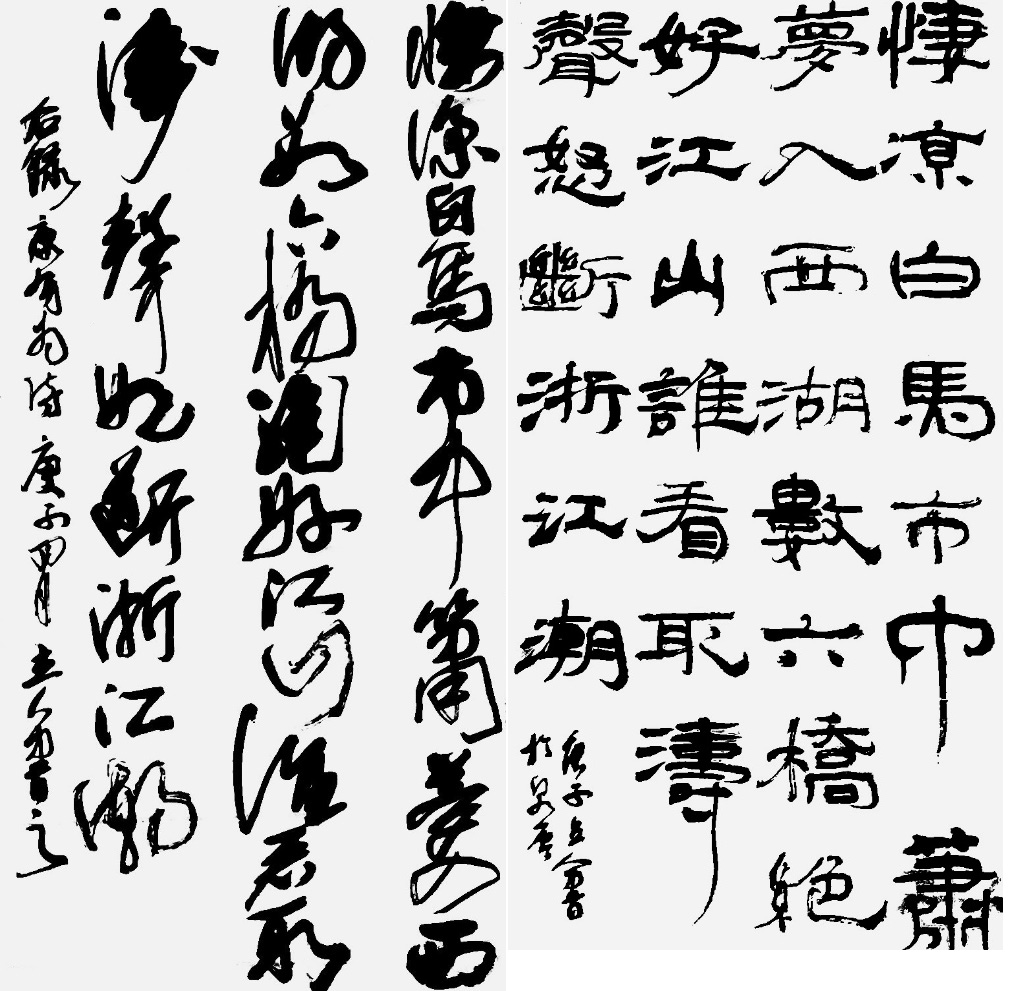 悽涼白馬市中蕭
夢入西湖數六橋絶
好江山誰看取濤
聲怒斷浙江潮
庚子立人書
於泉唐
悽涼白馬市中簫夢入西
湖数六橋絕好江山誰看取
濤聲怒斷浙江潮
右録康有為詩庚子四月立人書之